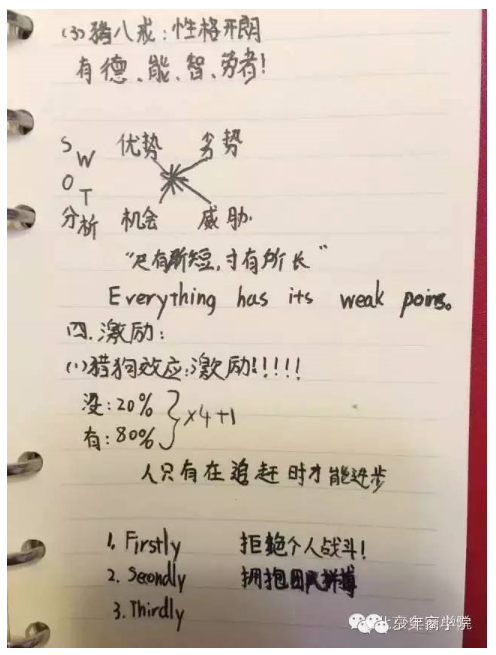 (3)猪八戒:性格开朗
有德、能、智、劳者!
S W 优势 劣势
O T
分析 机会 威胁.
“尺有所短,寸有所长”
Everything has its weak poins。
四.激励:
(1)猎狗效应:激励!!!!!
没:20%
有:80% }×4+1
人只有在追赶时才能进步
1. Firstly 拒绝个人战斗!
2. Seondly 拥抱团队拼搏
3. Thirdly
北京年商学院